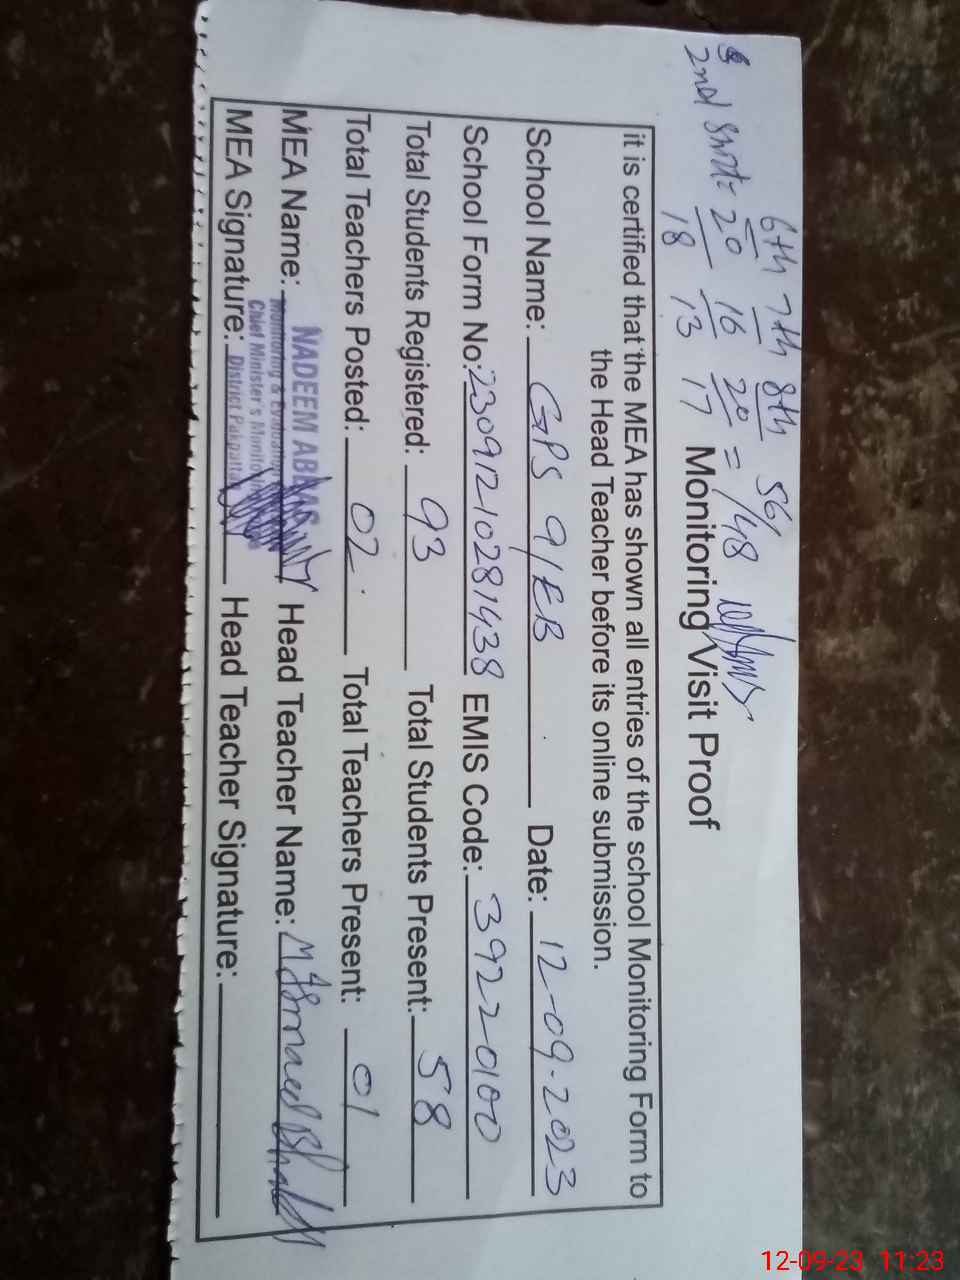 6th 7th 8th 56/
2nd Shift = 20 16 20 = /48
18 13 17
Monitoring Visit Proof
it is certified that the MEA has shown all entries of the school Monitoring Form to
the Head Teacher before its online submission.
School Name: GPS 9/EB Date: 12-09-2023
School Form No: 23091210281438 EMIS Code: 39220100
Total Students Registered: 93 Total Students Present: 58
Total Teachers Posted: 02 Total Teachers Present: 01
MEA Name: NADEEM ABBAS Head Teacher Name:
Monitoring & Evaluation
Chief Minister's Monitoring
MEA Signature: District Pakpattan Head Teacher Signature:
12-09-23 11:23